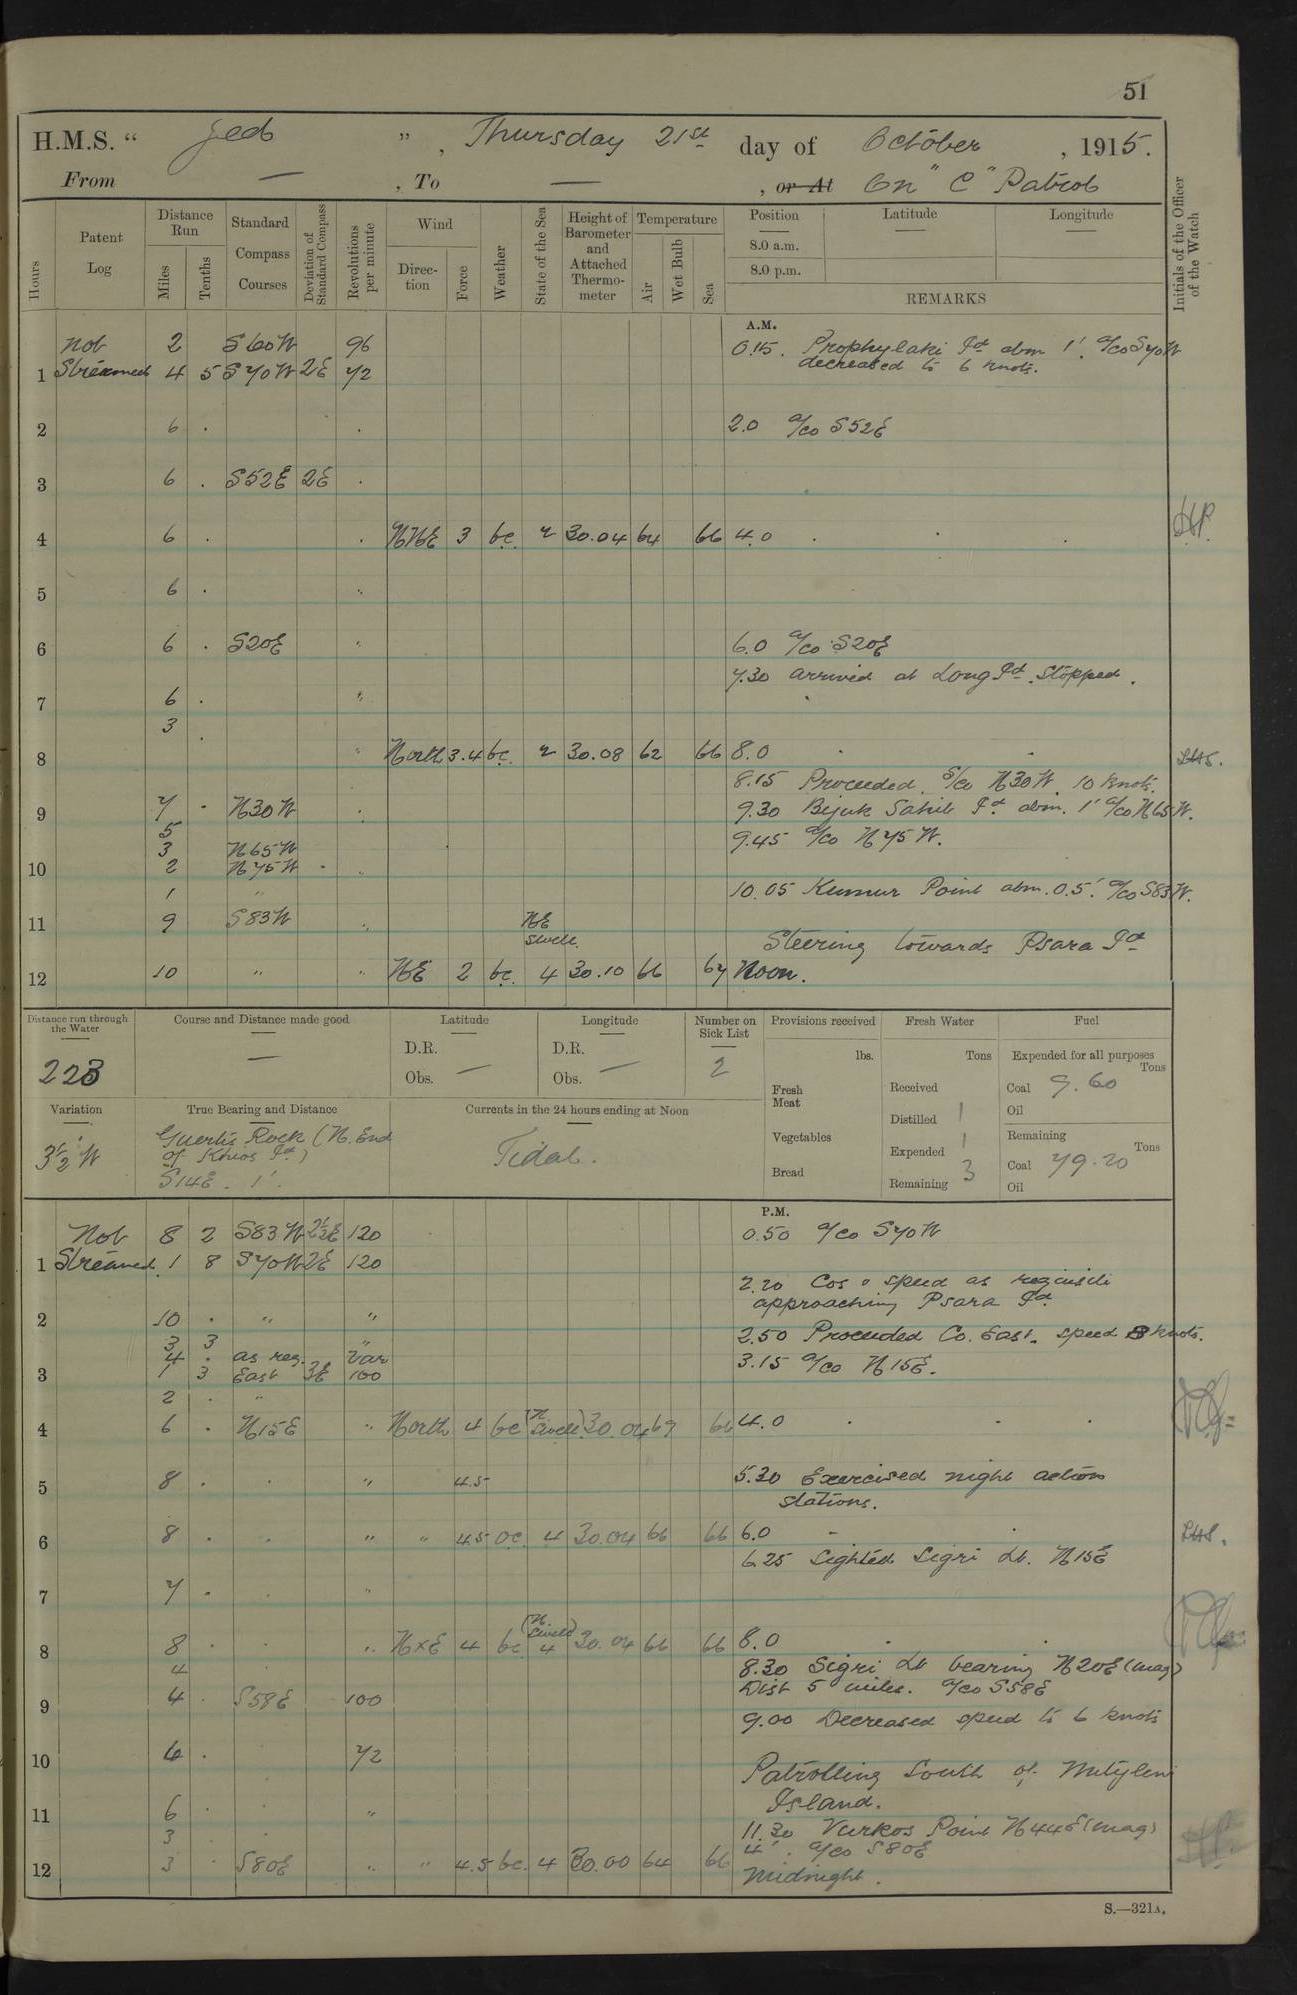 51
H.M.S. "Jed", Thursday 21st day of October, 1915.
From —, To —, or At On "C" Patrol
Hours
Patent Log
Distance Run
Miles
Tenths
Standard Compass Courses
Deviation of Standard Compass
Revolutions per minute
Wind
Direction
Force
Weather
State of the Sea
Height of Barometer and Attached Thermometer
Temperature
Air
Wet Bulb
Sea
Position
Latitude
Longitude
8.0 a.m.
8.0 p.m.
REMARKS
Initials of the Officer of the Watch
A.M.
Not 2 S60W 96 0.15. Prophylaki Id abm 1'. a/co S70W
1 Streamed 4 5 S70W 2E 72 decreased to 6 knots.
2 6 . . 2.0 a/co S52E
3 6 . S52E 2E .
4 6 . . NNE 3 bc. 2 30.04 64 66 4.0 . . . HP.
5 6 . "
6 6 . S20E " 6.0 a/co S20E
7.30 arrived at Long Id. Stopped.
7 6 . "
3
8 . " North 3.4 bc. 2 30.08 62 66 8.0 . . LHS.
8.15 Proceeded. S/co N30W. 10 knots.
9 7 . N30W " 9.30 Bijuk Sahib Id abm. 1' a/co N65W.
5
3 N65W 9.45 a/co N75W.
10 2 N75W . "
1 " 10.05 Kumur Point abm. 0.5'. a/co S83W.
11 9 S83W " NE swell.
Steering towards Psara Id
12 10 " " NE 2 bc. 4 30.10 66 67 Noon.
Distance run through the Water
223
Course and Distance made good
—
Latitude
D.R.
Obs. —
Longitude
D.R.
Obs. —
Number on Sick List
2
Provisions received
lbs.
Fresh Meat
Vegetables
Bread
Fresh Water
Tons
Received
Distilled 1
Expended 1
Remaining 3
Fuel
Expended for all purposes
Tons
Coal 9.60
Oil
Remaining
Tons
Coal 79.20
Oil
Variation
3½ W
True Bearing and Distance
Guertis Rock (N. End
of Khios Id)
S14E. 1'.
Currents in the 24 hours ending at Noon
Tidal.
P.M.
Not 8 2 S83W 2½E 120 0.50 a/co S70W
1 Streamed. 1 8 S70W 2E 120
2.20 Cos & speed as requisite
approaching Psara Id.
2 10 . " "
3 3 " 2.50 Proceeded Co. East. speed 8 knots.
4 . as req. Var 3.15 a/co N15E.
3 1 3 East 3E 100
2 . "
4 6 . N15E " North 4 bc (N Swell) 30.04 69 66 4.0 . . .
5 8 . . " 4.5 5.30 Exercised night action
stations.
6 8 . . " " 4.5 oc. 4 30.04 66 66 6.0 . . LHS.
6.25 Sighted Sigri Lt. N15E
7 7 . "
8 8 . . " NxE 4 bc (N. Swell) 4 30.04 66 66 8.0 . .
4 8.30 Sigri Lt bearing N20E (mag)
9 4 . S58E 100 Dist 5 miles. a/co S58E
9.00 Decreased speed to 6 knots
10 6 . 72
Patrolling South of Mityleni
Island.
11 6 . . "
3 11.30 Vurkos Point N44E (mag)
12 3 . S80E " " 4.5 bc. 4 30.00 64 66 4'. a/co S80E
Midnight.
S.—321A.